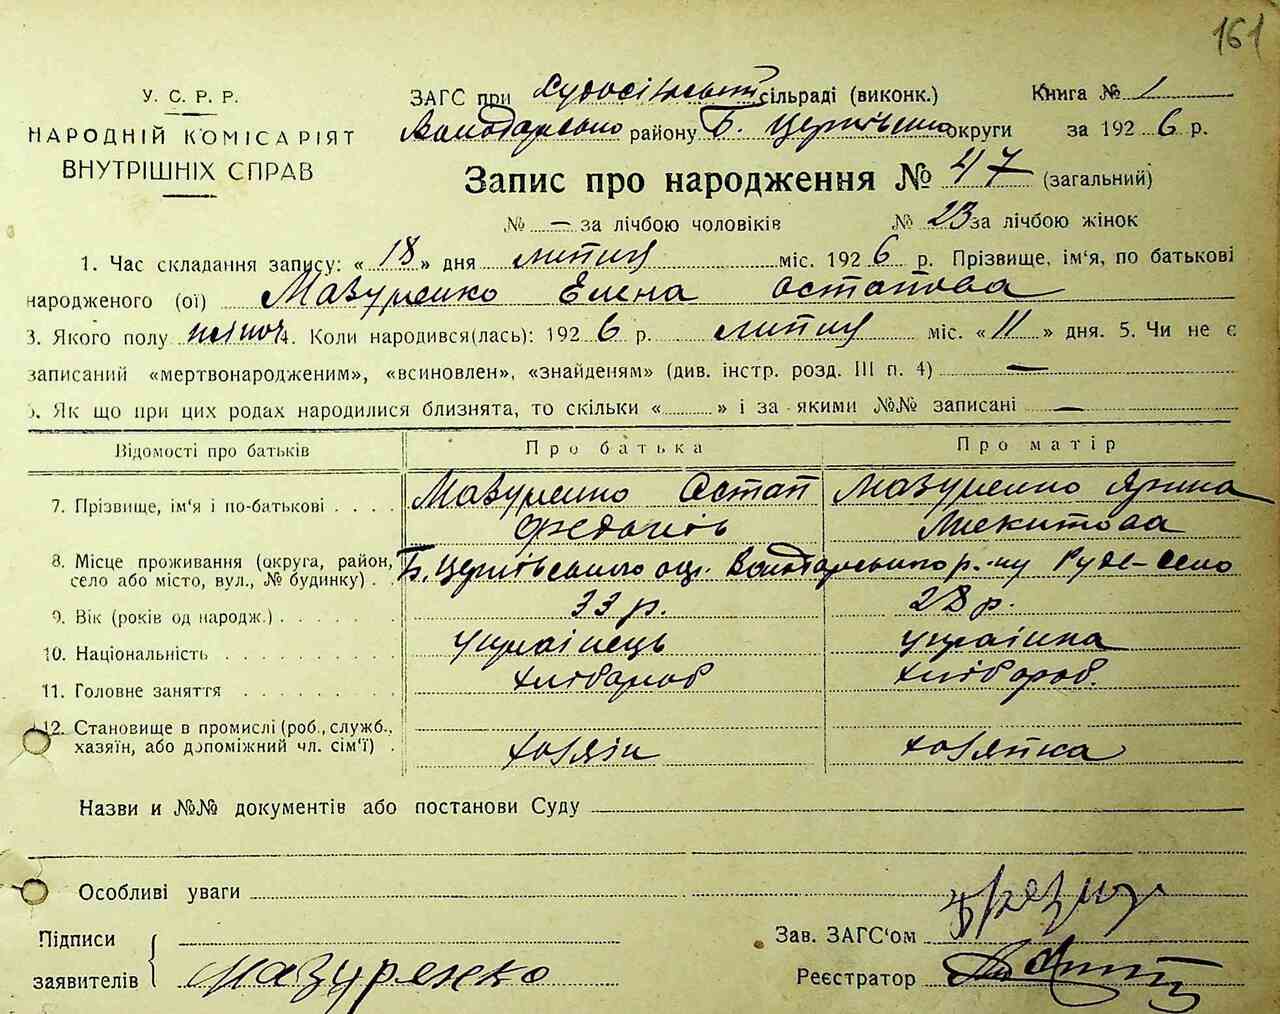 161
У. С. Р. Р.
НАРОДНІЙ КОМІСАРІЯТ
ВНУТРІШНІХ СПРАВ
ЗАГС при сільраді (виконк.) Книга № 1
Володарсько району Б. Церківсько округи за 1926 р.
Запис про народження № 47 (загальний)
№ — за лічбою чоловіків № 23 за лічбою жінок
1. Час складання запису: « 18 » дня липня міс. 1926 р. Прізвище, ім'я, по батькові
народженого (ої) Мазуренко Елена Остапова
3. Якого полу жіноч 4. Коли народився(лась): 1926 р. липня міс. « 11 » дня. 5. Чи не є
записаний «мертвонародженим», «всиновлен», «знайденям» (див. інстр. розд. III п. 4) —
6. Як що при цих родах народилися близнята, то скільки « » і за якими №№ записані —
Відомості про батьків Про батька Про матір
7. Прізвище, ім'я і по-батькові Мазуренко Остап Федоків Мазуренко Ярина Микитова
8. Місце проживання (округа, район, село або місто, вул., № будинку) Б. Церківського окр. Володарського р-ну Руде-село
9. Вік (років од народж.) 33 р. 28 р.
10. Національність українець українка
11. Головне заняття хлібароб хлібороб.
12. Становище в промислі (роб., служб., хазяїн, або допоміжний чл. сім'ї) хозяїн хозяйка
Назви и №№ документів або постанови Суду
Особливі уваги
Підписи заявителів Мазуренко
Зав. ЗАГС'ом
Реєстратор